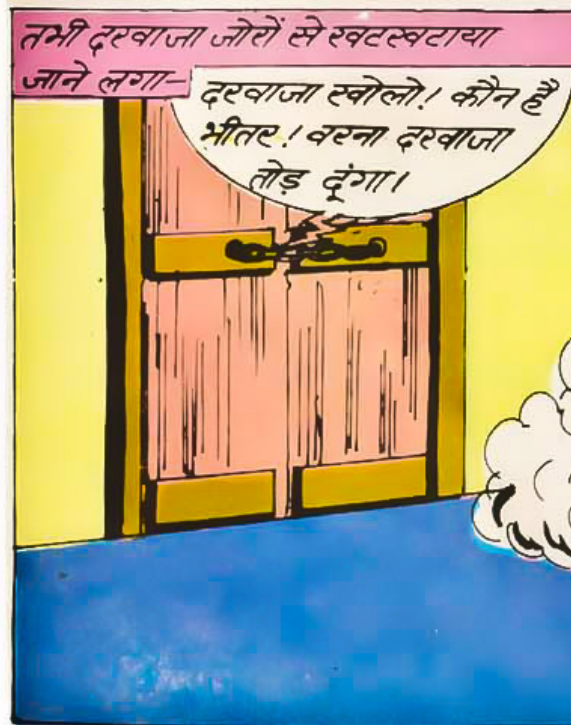 तभी दरवाजा जोरों से खटखटाया
जाने लगा-
दरवाजा खोलो! कौन है
भीतर! वरना दरवाजा
तोड़ दूंगा।